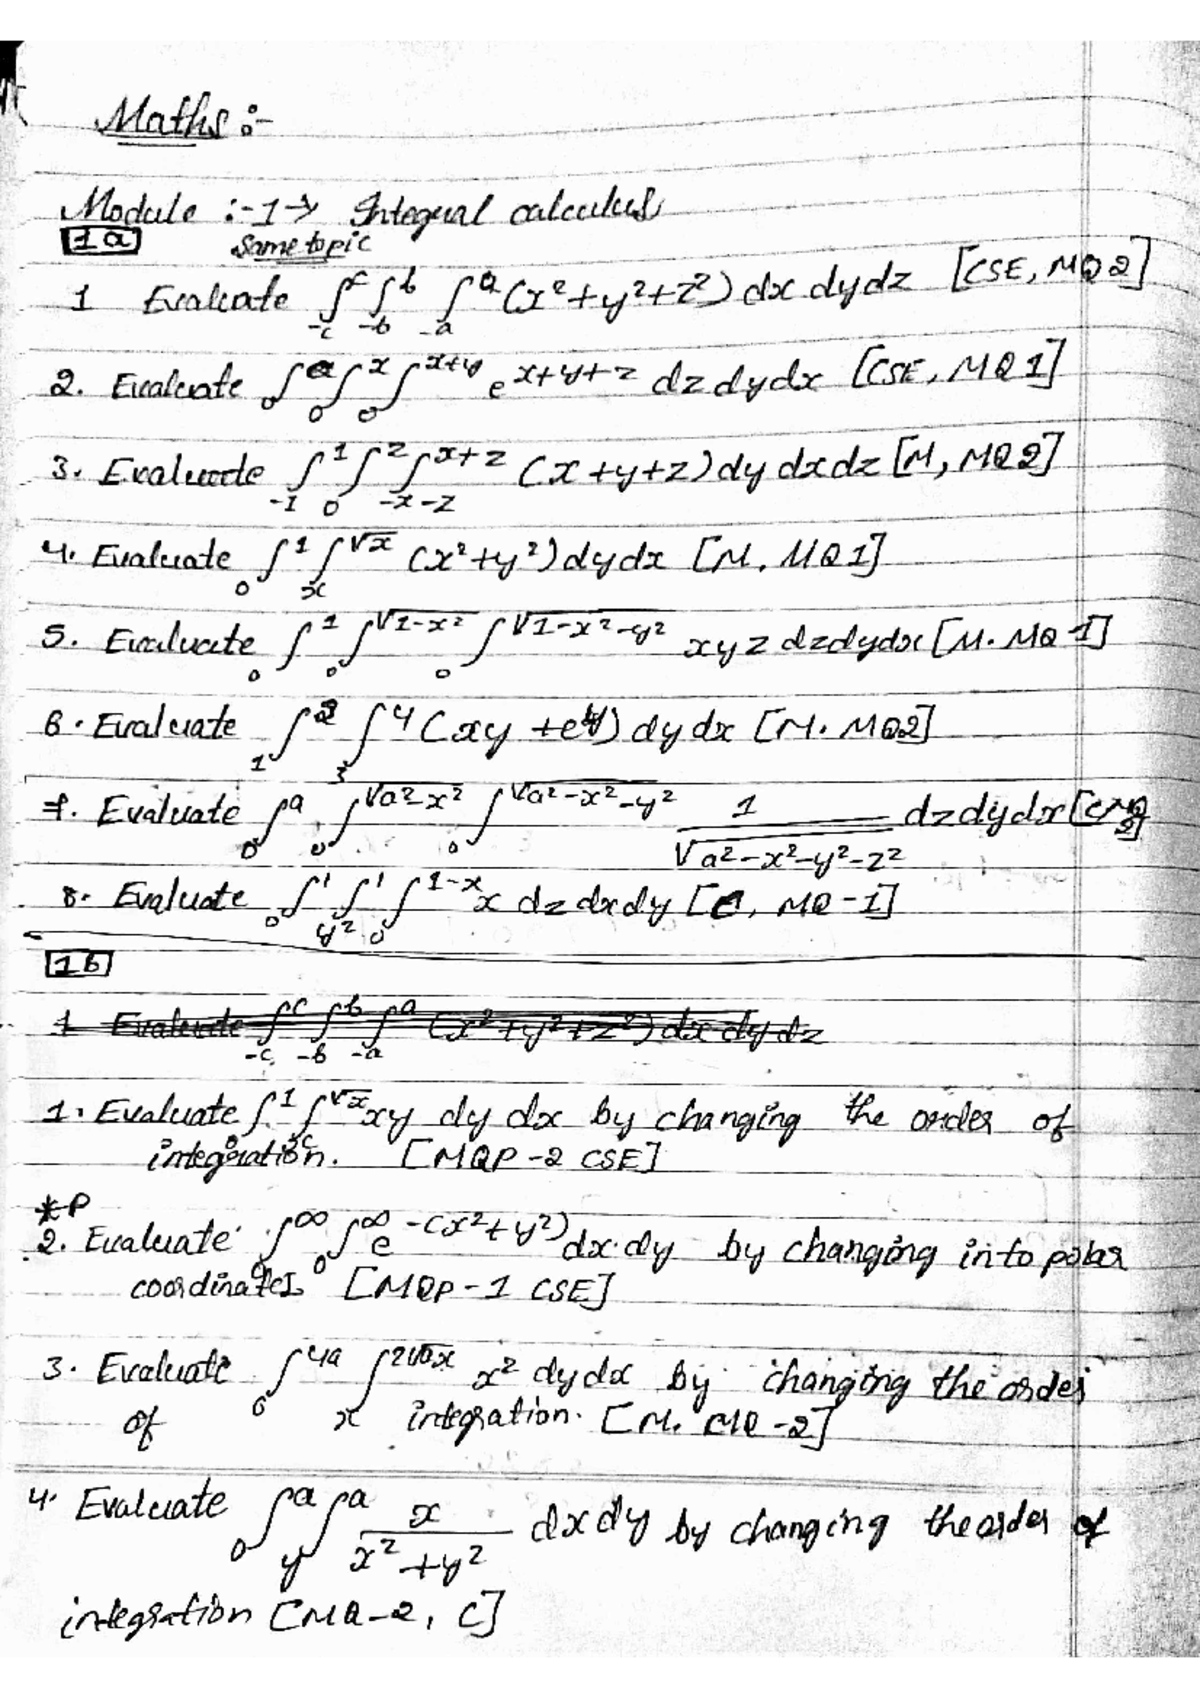 Maths :-
Module :-1→ Integral calculus
1a Same topic
1 Evaluate ∫_{-c}^{c} ∫_{-b}^{b} ∫_{-a}^{a} (x²+y²+z²) dx dy dz [CSE, MQ2]
2. Evaluate ∫_0^a ∫_0^x ∫_0^{x+y} e^{x+y+z} dz dy dx [CSE, MQ1]
3. Evaluate ∫_{-1}^{1} ∫_0^z ∫_{-x-z}^{x+z} (x+y+z) dy dx dz [M, MQ2]
4. Evaluate ∫_0^1 ∫_x^{√x} (x²+y²) dy dx [M. MQ1]
5. Evaluate ∫_0^1 ∫_0^{√1-x²} ∫_0^{√1-x²-y²} xyz dz dy dx [M. MQ 1]
6. Evaluate ∫_1^2 ∫_3^4 (xy + e^y) dy dx [M. MQ2]
7. Evaluate ∫_0^a ∫_0^{√a²-x²} ∫_0^{√a²-x²-y²} 1/√a²-x²-y²-z² dz dy dx [C MQ 2]
8. Evaluate ∫_0^1 ∫_{y²}^1 ∫_0^{1-x} x dz dx dy [C, MQ-1]
1b
1 Evaluate ∫_{-c}^{c} ∫_{-b}^{b} ∫_{-a}^{a} (x²+y²+z²) dx dy dz
1. Evaluate ∫_0^1 ∫_x^{√x} xy dy dx by changing the order of
integration. [MQP-2 CSE]
*P
2. Evaluate ∫_0^∞ ∫_0^∞ e^{-(x²+y²)} dx dy by changing into polar
coordinates [MQP-1 CSE]
3. Evaluate ∫_0^{4a} ∫_x^{2√ax} x² dy dx by changing the order
of integration. [M. MQ-2]
4. Evaluate ∫_0^a ∫_y^a x/x²+y² dx dy by changing the order of
integration [MQ-2, C]